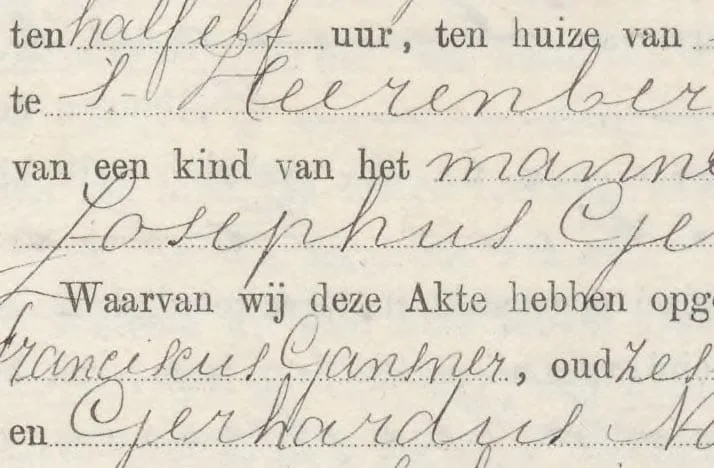 ten half elf uur, ten huize van
te 's Heerenber
van een kind van het manne
Josephus Ge
Waarvan wij deze Akte hebben opge
Franciskus Gansner, oud zes
en Gerhardus No